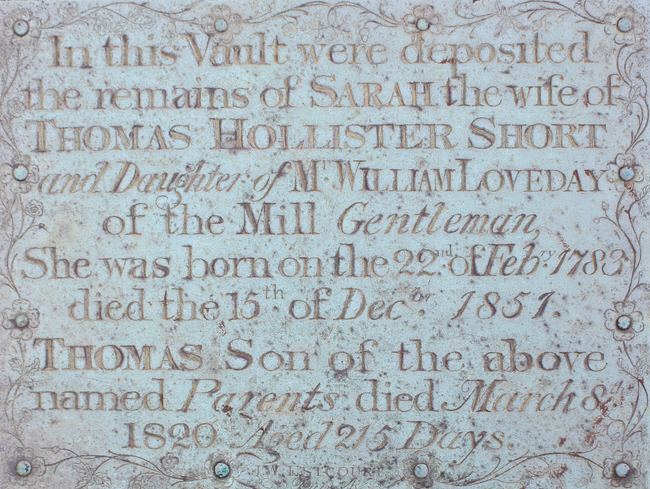 In this Vault were deposited
the remains of SARAH the wife of
THOMAS HOLLISTER SHORT
and Daughter of Mr WILLIAM LOVEDAY
of the Mill Gentleman
She was born on the 22nd of Feby. 1783
died the 15th of Decbr. 1851.
THOMAS Son of the above
named Parents died March 8th
1820 Aged 215 Days.
J.W. ESTCOURT